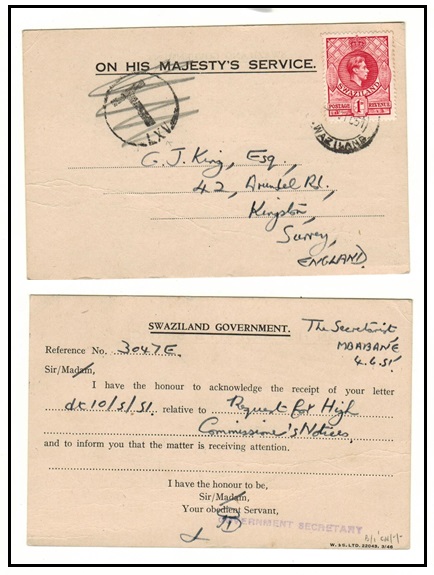 ON HIS MAJESTY'S SERVICE.
SWAZILAND
POSTAGE REVENUE
1D
T
TAX
SWAZILAND
C. J. King, Esq.,
42, Arundel Rd.,
Kingston,
Surrey,
ENGLAND.
SWAZILAND GOVERNMENT.
The Secretariat
MBABANE
4.6.51
Reference No. 3047E.
Sir/Madam,
I have the honour to acknowledge the receipt of your letter
dt 10/5/51. relative to Request for High
Commissioner's Notices
and to inform you that the matter is receiving attention.
I have the honour to be,
Sir/Madam,
Your obedient Servant,
GOVERNMENT SECRETARY
W. &S. LTD. 22049. 3/48